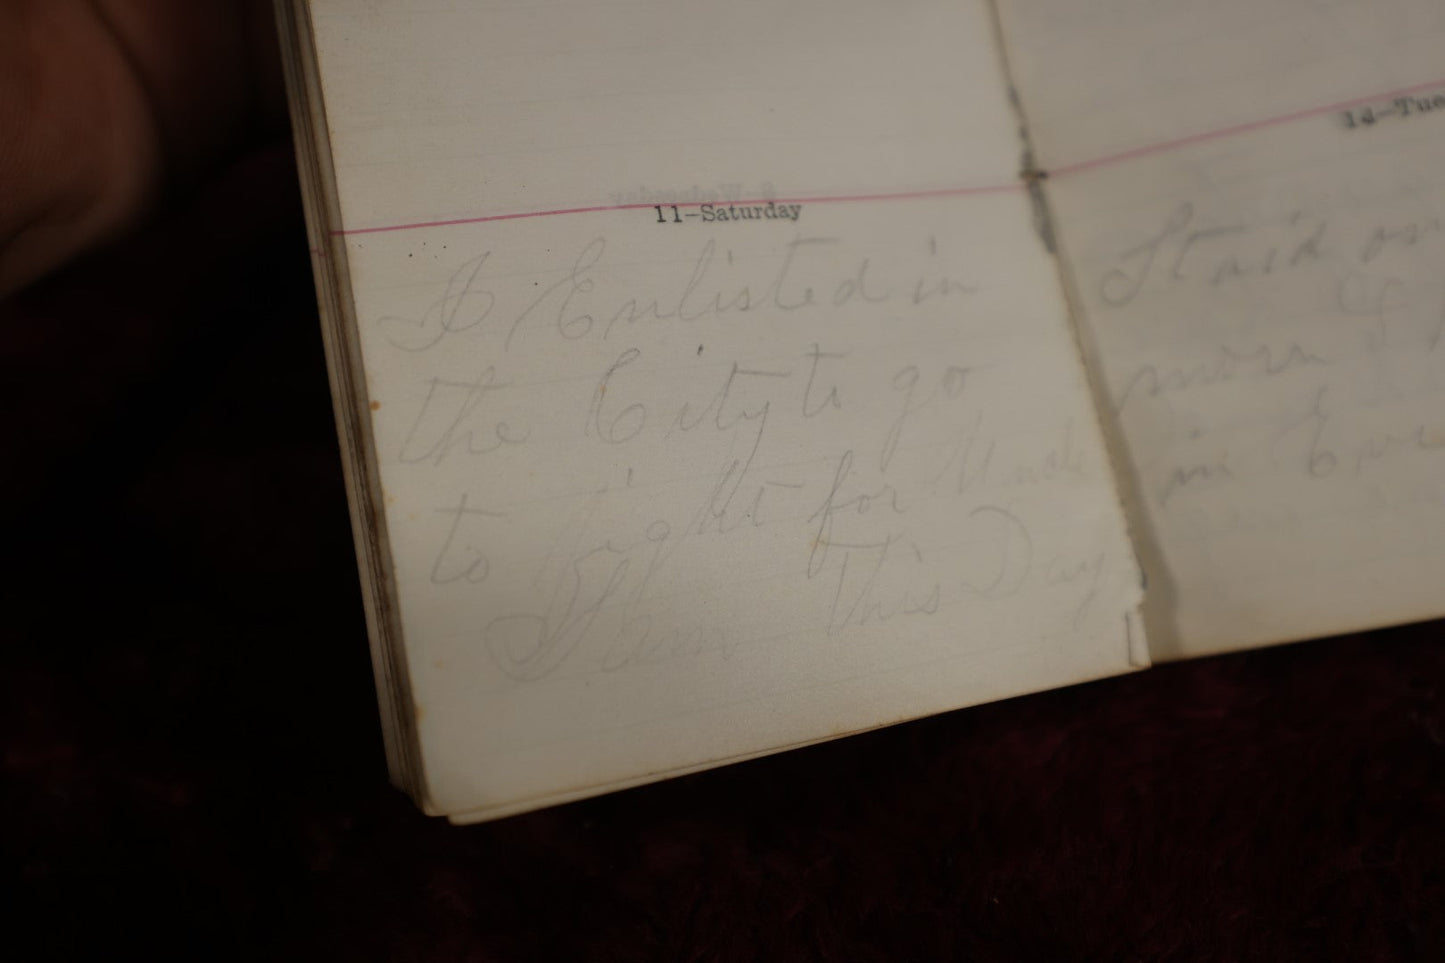 11–Saturday
I Enlisted in
the City to go
to Fight for Uncle
Sam This Day
14–Tue
Staid on
morn
in Eve